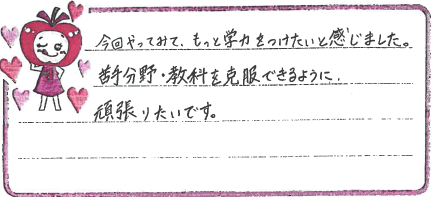 今回やってみて、もっと学力をつけたいと感じました。
苦手分野・教科を克服できるように、
頑張りたいです。